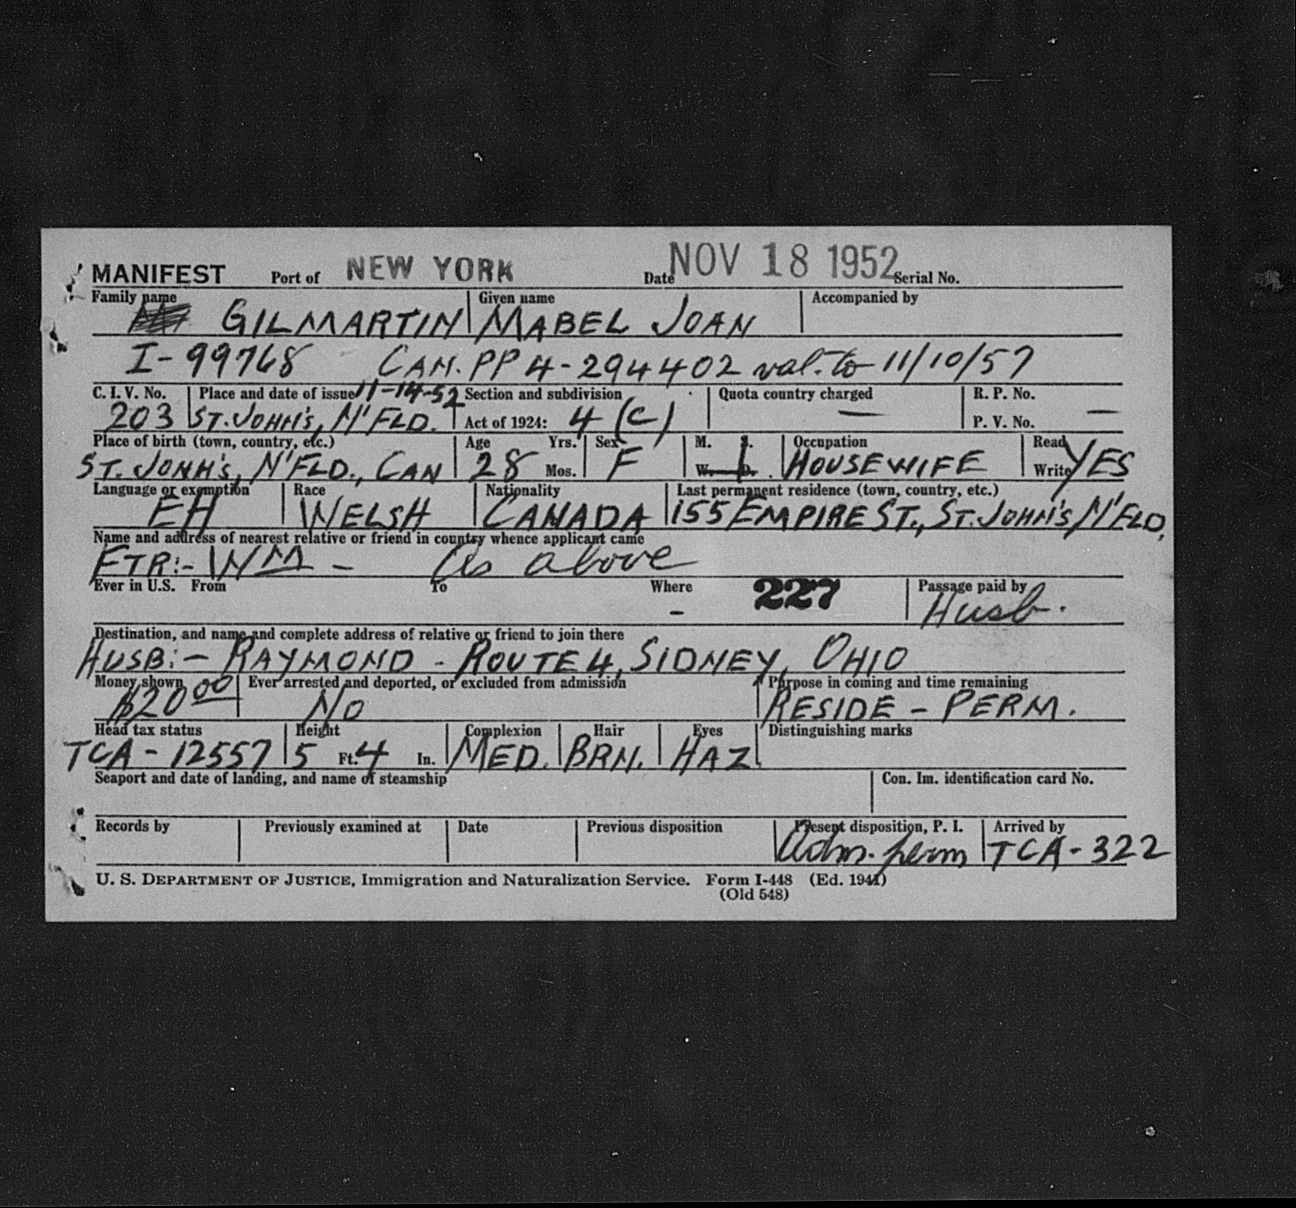 MANIFEST Port of NEW YORK Date NOV 18 1952 Serial No.
Family name Given name Accompanied by
GILMARTIN MABEL JOAN
I-99768 CAN. PP 4-294402 val. to 11/10/57
C. I. V. No. Place and date of issue 11-14-52 Section and subdivision Quota country charged R. P. No.
203 ST. JOHN'S, N'FLD. Act of 1924: 4 (C) — P. V. No. —
Place of birth (town, country, etc.) Age Yrs. Sex M. S. Occupation Read
ST. JOHN'S, N'FLD., CAN 28 Mos. F W. D. HOUSEWIFE Write YES
Language or exemption Race Nationality Last permanent residence (town, country, etc.)
EH WELSH CANADA 155 EMPIRE ST., ST. JOHN'S N'FLD,
Name and address of nearest relative or friend in country whence applicant came
FTR:- WM - As above
Ever in U.S. From To Where 227 Passage paid by
- Husb.
Destination, and name and complete address of relative or friend to join there
HUSB:- RAYMOND - ROUTE 4, SIDNEY, OHIO
Money shown Ever arrested and deported, or excluded from admission Purpose in coming and time remaining
$20 00 NO RESIDE - PERM.
Head tax status Height Complexion Hair Eyes Distinguishing marks
TCA - 12557 5 Ft. 4 In. MED. BRN. HAZ
Seaport and date of landing, and name of steamship Con. Im. identification card No.
Records by Previously examined at Date Previous disposition Present disposition, P. I. Arrived by
Adm. perm TCA - 322
U. S. DEPARTMENT OF JUSTICE, Immigration and Naturalization Service. Form I-448 (Ed. 1941)
(Old 548)